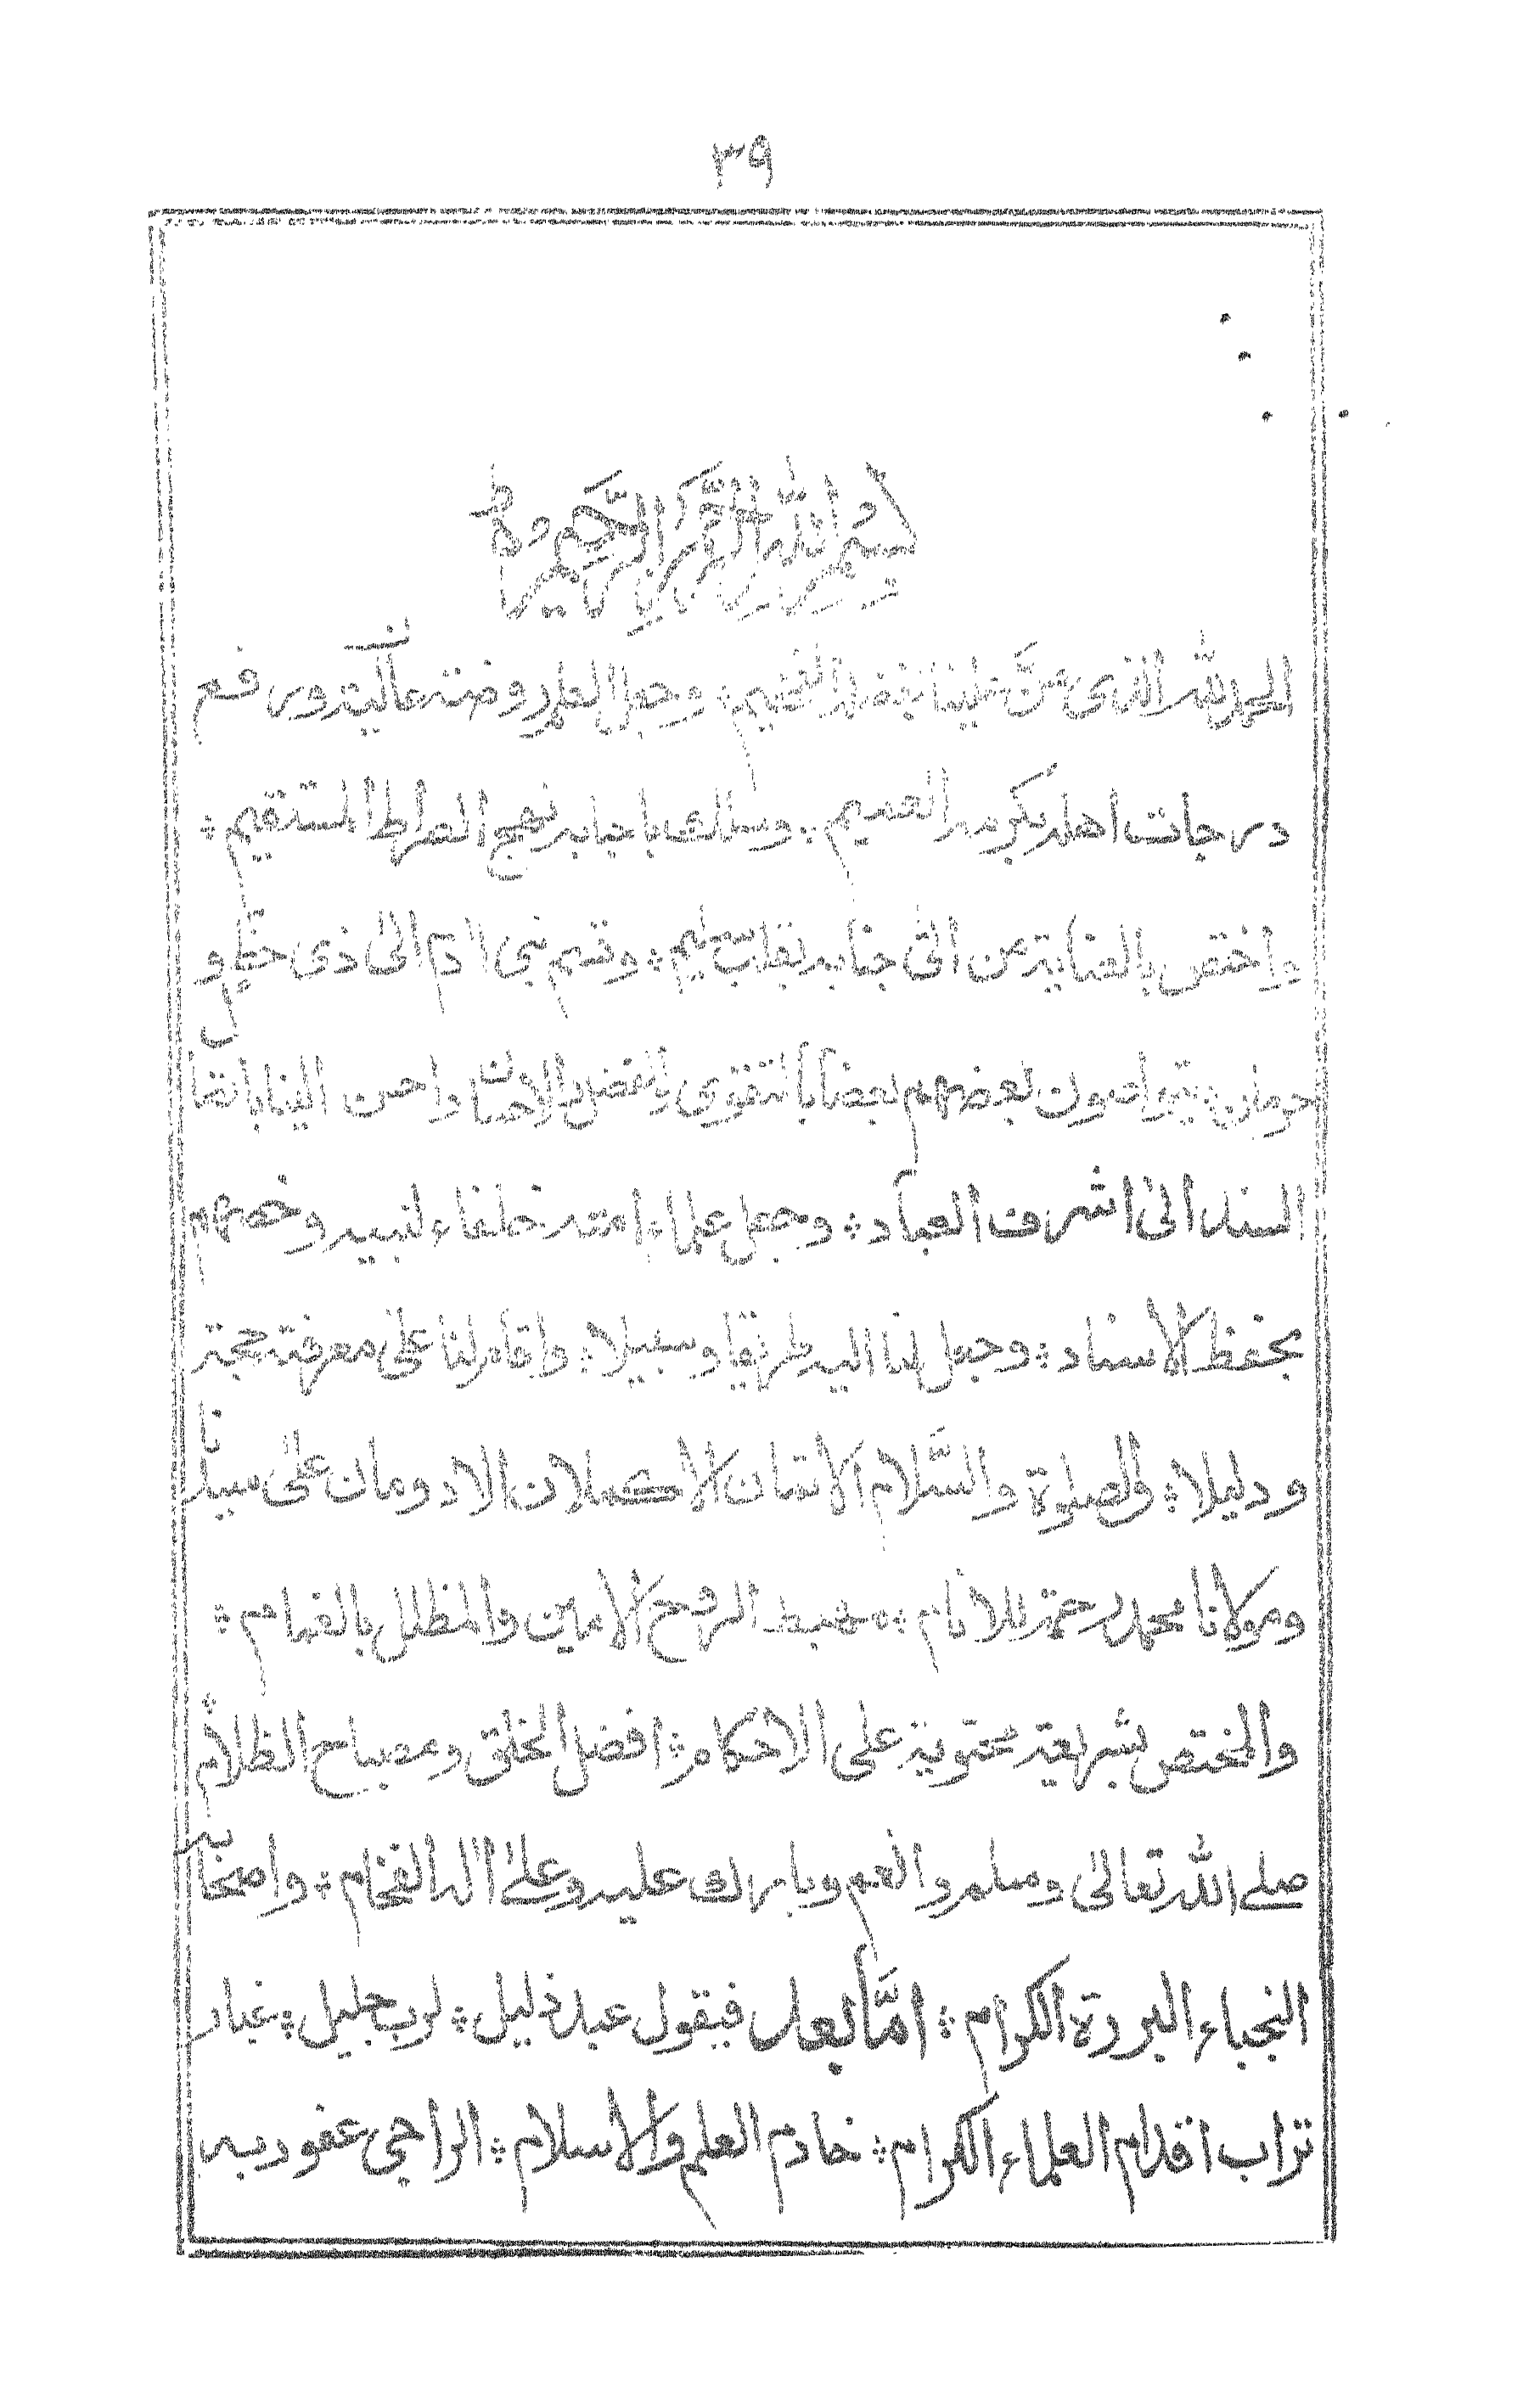 ٣٩
بسم الله الرحمن الرحيم
الحمد لله الذى منّ علينا بفضله الفخيم ؞ وجعل العلم روضته عالية ورفع
درجات اهله بكرمه العميم ؞ وسلك باحبابه نهج الصراط المستقيم ؞
واختص بالعناية من اتى جنابه بقلب سليم ؞ وقسم بنى اٰدم الى ذى حظ و
حرمان ؞ يتواصون بعضهم بعضا بالتقوى والفضل والاحسان واحسن الينا باتصال
السند الى اشرف العباد ؞ وجعل علماء امته خلفاء لنبيه وخصهم
بحفظ الاسناد ؞ وجعل لنا اليه طريقا وسبيلا ؞ واقام لنا على معرفته حجة
ودليلا ؞ والصلوة والسّلام الاتمان الاكملان الادومان على سيدنا
ومولانا محمد رحمة للانام ؞ مهبط الروح الامين والمظلل بالغمام ؞
والمختص بشريعة محتوية على الاحكام ؞ افضل الخلق ومصباح الظلام ؞
صلى الله تعالى وسلم وانعم وبارك عليه وعلى اٰله الفخام ؞ واصحابه
النجباء البررة الكرام ؞ امّا بعد فيقول عبد ذليل ؞ لرب جليل ؞ غبار
تراب اقدام العلماء الكرام ؞ خادم العلم والاسلام ؞ الراجى عفو ربه